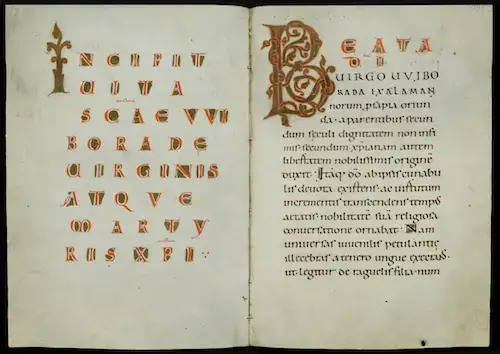 INCIPIT
UITA
SCAE VVI
BORADE
UIRGINIS
ATQVE
MARTY
RIS XPI
BEATA
DI
UIRGO UVIBO
RADA EX ALAMAN
norum psapia oriun
da· a parentibus secun
dum seculi dignitatem non infi
mis secundum xpianam autem
libertatem nobilissimis originē
duxit· Itaq; dō ab ipsis cunabu
lis deuota existens· ac uirtutum
incrementis transcendens temp
aetatis nobilitatē suā religiosa
conuersatione ornabat· Nam
uniuersas iuuenilis petulantię
illecebras a tenero ungue
ut legitur de raguelis filia· num